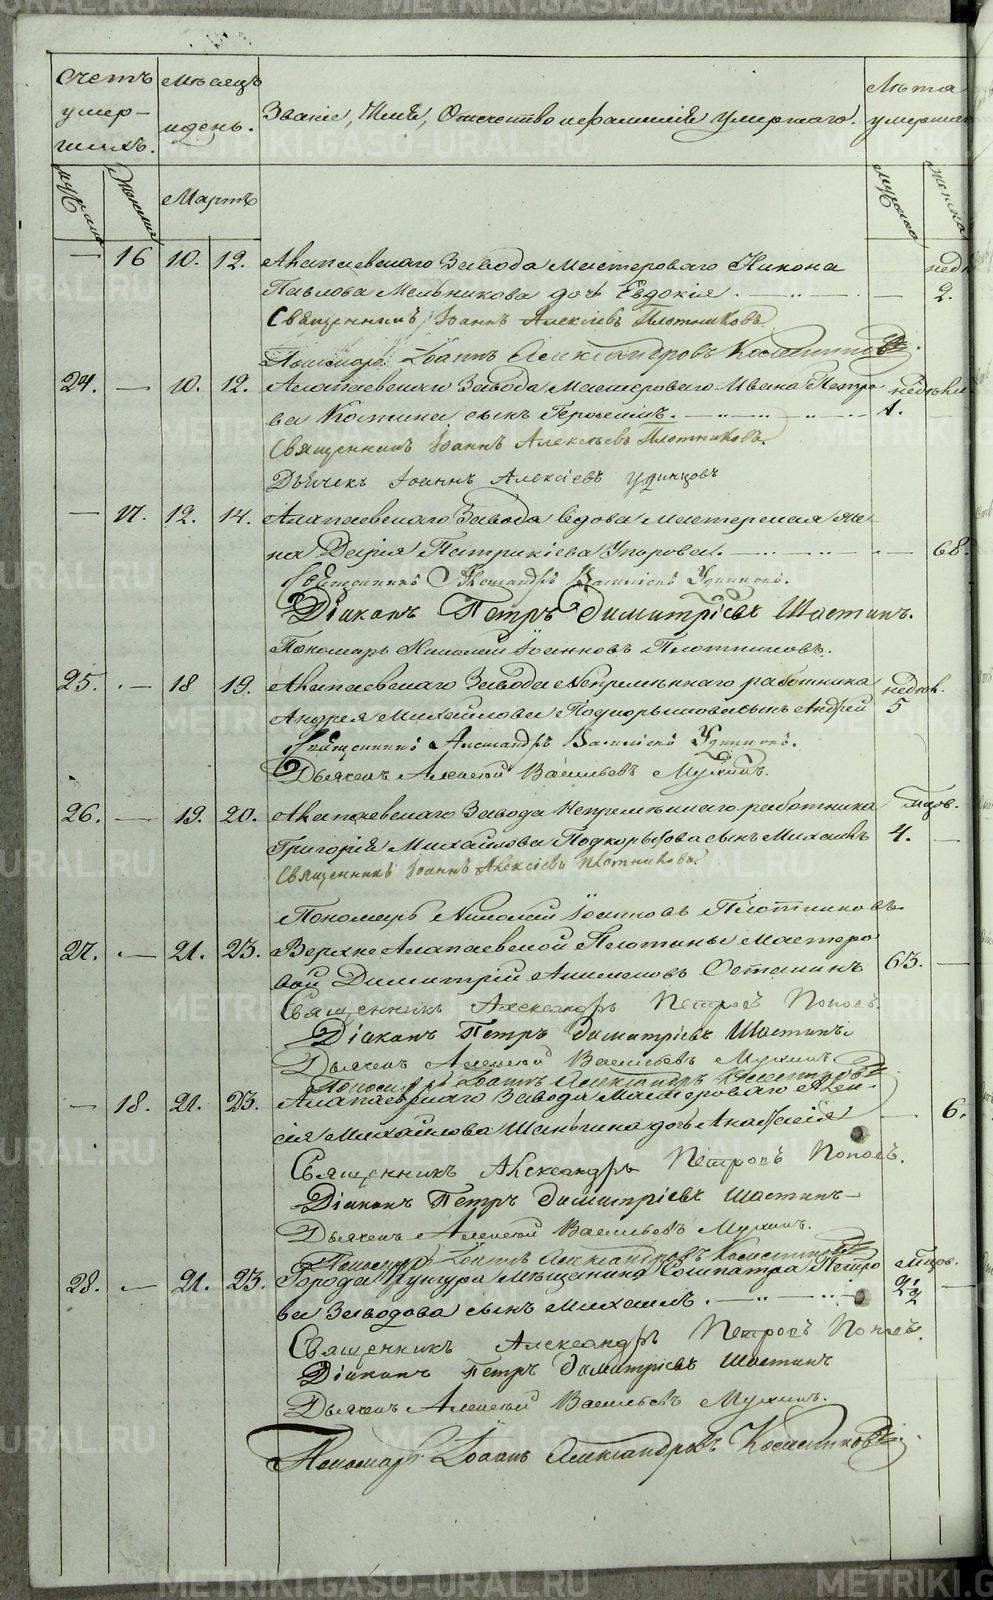 Счетъ умер-шихъ.
Мѣсяцъ и день.
Званіе, Имя, Отчество и фамилія умершаго.
Лѣта умершаго
мужска
женска
Мартъ
мужска
женска
— 16 10. 12. Алапаевскаго Завода Мастероваго Никона
Павлова Мельникова дочь Евдокія . — недѣ 2.
Священникъ Іоаннъ Алексіевъ Плотниковъ
Пономарь Іоаннъ Александровъ Косми
24. — 10. 12. Алапаевскаго Завода Мастероваго Ивана Петро
ва Костина сынъ Герасимъ. недѣли 1.
Священникъ Іоаннъ Алексѣевъ Плотниковъ.
Дьячекъ Іоаннъ Алексіевъ Удинцовъ
— 17. 12. 14. Алапаевскаго Завода вдова мастерская же
на Дарія Патрикіева Упорова. — 68.
Священникъ Александръ Васильевъ Удинцовъ.
Діаконъ Петръ Димитріевъ Шастинъ.
Пономарь Николай Іоанновъ Плотниковъ.
25. — 18 19. Алапаевскаго Завода Непремѣннаго работника
Андрея Михайлова Подкорытова сынъ Андрей недѣль. 5
Священникъ Александръ Васильевъ Удинцовъ.
Дьячекъ Алексѣй Васильевъ Мухинъ.
26. — 19. 20. Алапаевскаго Завода Непремѣннаго работника
Григорія Михайлова Подкорытова сынъ Михаилъ мѣсяц. 4. —
Священникъ Іоаннъ Алексіевъ Плотниковъ.
Пономарь Николай Іоанновъ Плотниковъ
27. — 21. 23. Верхне Алапаевской Плотины мастеро
вой Димитрій Останинъ 63. —
Священникъ Александръ Петровъ Поповъ.
Діаконъ Петръ Димитріевъ Шастинъ
Дьячекъ Алексѣй Васильевъ Мухинъ
Пономарь Іоаннъ Александровъ
— 18. 21. 23. Алапаевскаго Завода Мастероваго Алек-
сія Михайлова Шаньгина дочь Анастасія — 6.
Священникъ Александръ Петровъ Поповъ.
Діаконъ Петръ Димитріевъ Шастинъ
Дьячекъ Алексѣй Васильевъ Мухинъ.
Пономарь Іоаннъ Александровъ
28. — 21. 23. Города Кунгура мѣщанина Сосипатра Петро
ва Заводова сынъ Михаилъ. 2 1/2 —
Священникъ Александръ Петровъ Поповъ.
Діаконъ Петръ Димитріевъ Шастинъ
Дьячекъ Алексѣй Васильевъ Мухинъ.
Пономарь Іоаннъ Александровъ
METRIKI.GASO-URAL.RU